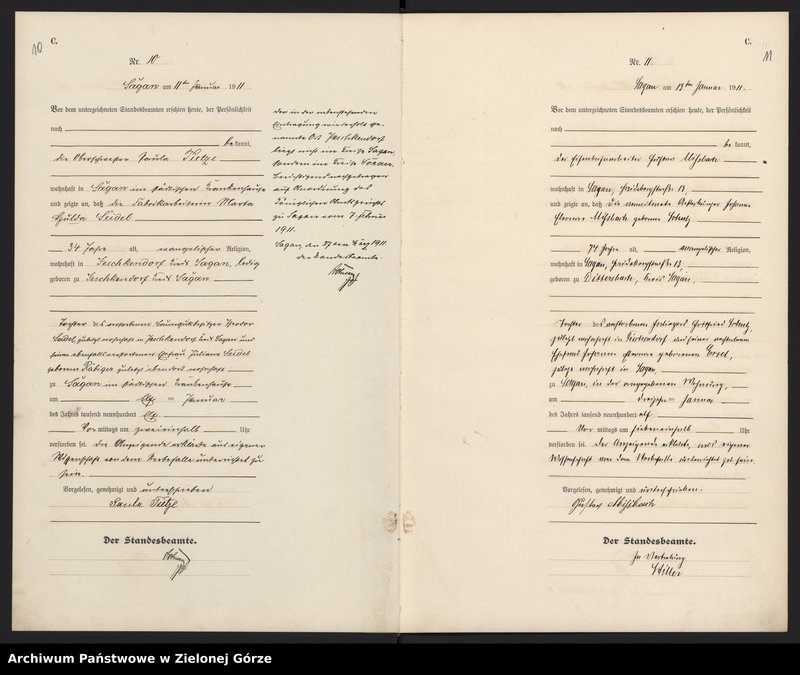 10
C.
Nr. 10
Sagan am 11ten Januar 1911.
Vor dem unterzeichneten Standesbeamten erschien heute, der Persönlichkeit
nach
bekannt,
die Oberschwester Paula Tietze
wohnhaft in Sagan im städtischen Krankenhause
und zeigte an, daß die Fabrikarbeiterin Marta
Hulda Seidel
34 Jahre alt, evangelischer Religion,
wohnhaft in Jeschkendorf Kreis Sagan, ledig
geboren zu Jeschkendorf Kreis Sagan
Tochter des verstorbenen
Seidel, zuletzt wohnhaft in Jeschkendorf Kreis Sagan und
seiner ebenfalls verstorbenen Ehefrau Juliane Seidel
geborenen zuletzt ebendort wohnhaft
zu Sagan im städtischen Krankenhause
am elften Januar
des Jahres tausend neunhundert elf
Vormittags um Uhr
verstorben sei. Die Anzeigende erklärte aus eigener
Wissenschaft von dem Sterbefalle unterrichtet zu
sein.
Vorgelesen, genehmigt und unterschrieben
Paula Tietze
Der Standesbeamte.
Der in der nebenstehenden
Eintragung wiederholt ge-
nannte Ort Jeschkendorf
liegt nicht im Kreise Sagan,
sondern im Kreise Sorau.
Berichtigend nachgetragen
auf Anordnung des
Königlichen Amtsgerichts
zu Sagan vom 7. Februar
1911.
Sagan, den 1911.
Der Standesbeamte.
C.
11
Nr. 11
Sagan am 13ten Januar 1911.
Vor dem unterzeichneten Standesbeamten erschien heute, der Persönlichkeit
nach
bekannt,
der Eisenbahnarbeiter Gustav
wohnhaft in Sagan, 13,
und zeigte an, daß die verwitwete Johanne
Eleonore geborene
74 Jahre alt, evangelischer Religion,
wohnhaft in Sagan, 13,
geboren zu Dittersbach, Kreis Sagan,
Tochter des verstorbenen Gottfried
zuletzt wohnhaft in und seiner verstorbenen
Ehefrau Johanne Eleonore geborenen
zuletzt wohnhaft in Sagan,
zu Sagan, in der angegebenen Wohnung,
am dreizehnten Januar
des Jahres tausend neunhundert elf
Vormittags um Uhr
verstorben sei. Der Anzeigende erklärte, aus eigener
Wissenschaft von dem Sterbefalle unterrichtet zu sein.
Vorgelesen, genehmigt und unterschrieben.
Gustav
Der Standesbeamte.
In Vertretung
Hiller
Archiwum Państwowe w Zielonej Górze